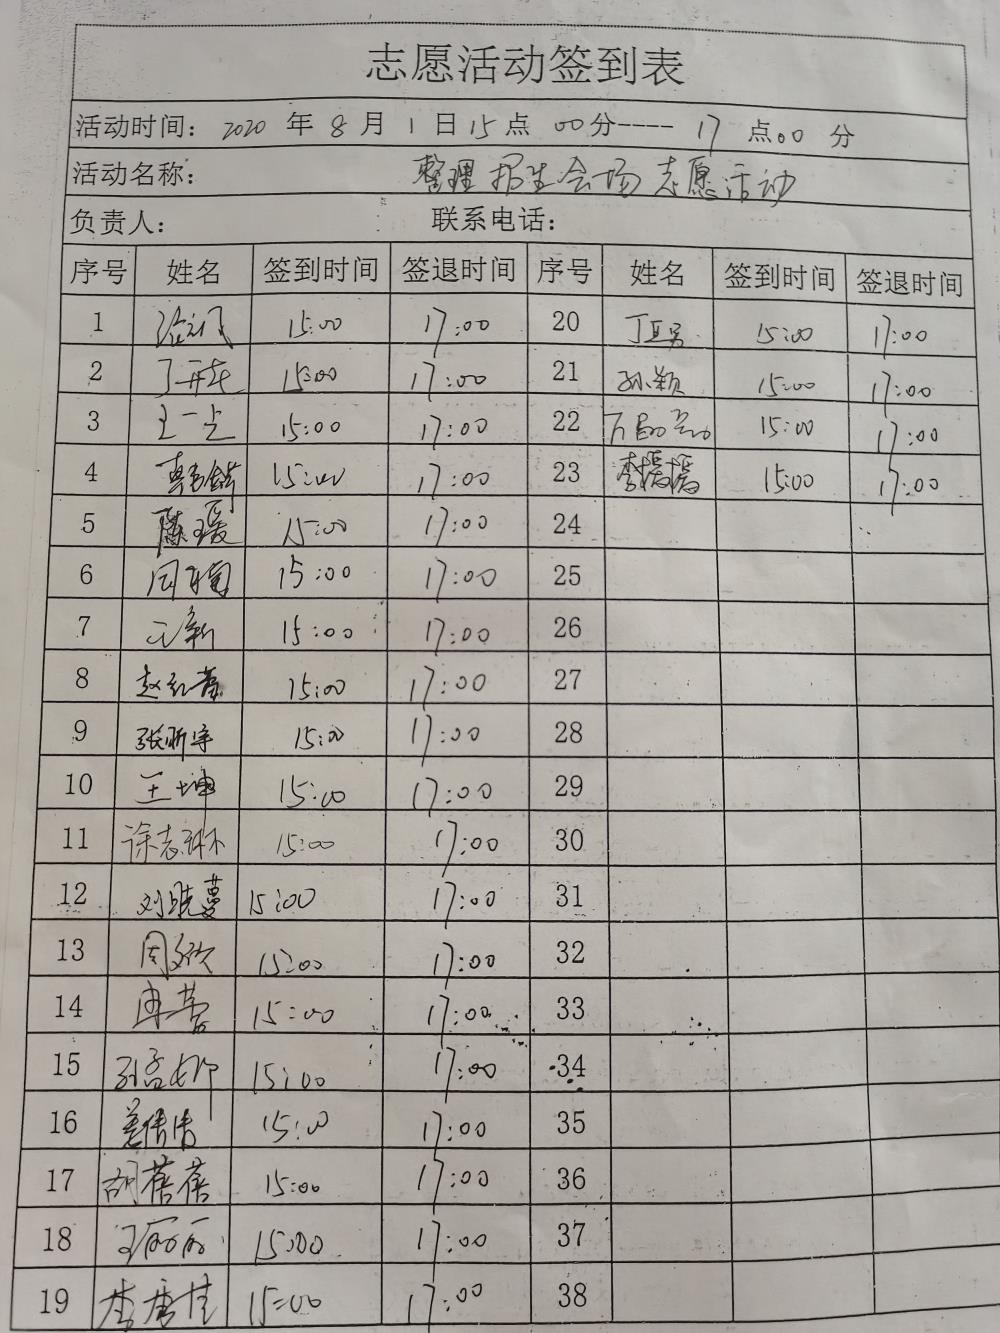 志愿活动签到表
活动时间: 2020 年 8 月 1 日 15 点 00 分---- 17 点 00 分
活动名称: 整理招生会场志愿活动
负责人: 联系电话:
序号 姓名 签到时间 签退时间 序号 姓名 签到时间 签退时间
1 15:00 17:00 20 15:00 17:00
2 15:00 17:00 21 孙颖 15:00 17:00
3 15:00 17:00 22 15:00 17:00
4 15:00 17:00 23 李嫣嫣 15:00 17:00
5 陈瑷 15:00 17:00 24
6 15:00 17:00 25
7 15:00 17:00 26
8 15:00 17:00 27
9 张昕宇 15:00 17:00 28
10 王坤 15:00 17:00 29
11 徐志琳 15:00 17:00 30
12 刘晓蔓 15:00 17:00 31
13 周欣 15:00 17:00 32
14 15:00 17:00 33
15 孙孟娜 15:00 17:00 34
16 姜倩倩 15:00 17:00 35
17 胡蓓蓓 15:00 17:00 36
18 王丽丽 15:00 17:00 37
19 李唐佳 15:00 17:00 38